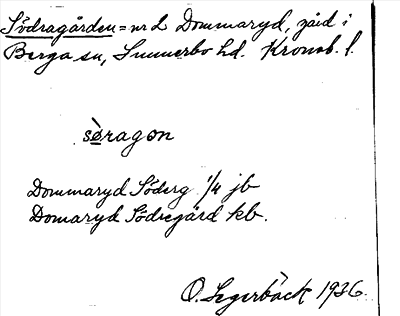 Södragården = nr 2 Dommaryd, gård i
Berga sn, Sunnerbo hd. Kronob. l.
sɵ̀ragon
Dommaryd Söderg 1/4 jb
Domaryd Södregård kb.
O. Segerbäck 1936